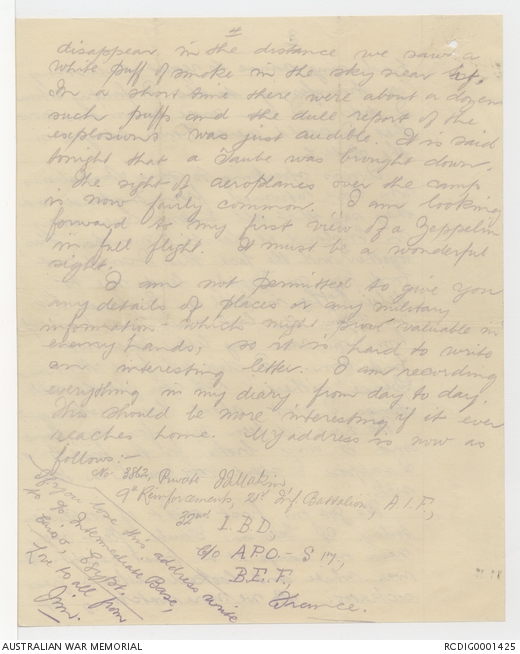 4
disappear, in the distance we saw a
white puff of smoke in the sky near it.
In a short time there were about a dozen
such puffs and the dull report of the
explosions was just audible. It is said
tonight that a Taube was brought down.
The sight of aeroplanes over the camp
is now fairly common. I am looking
forward to my first view of a Zeppelin
in full flight. It must be a wonderful
sight.
I am not permitted to give you
any details of places or any military
information which might prove valuable in
enemy hands, so it is hard to write
an interesting letter. I am recording
everything in my diary from day to day.
This should be more interesting if it ever
reaches home. My address is now as
follows:-
No. 3862, Private
9th Reinforcements, 21st Inf. Battalion, A.I.F,
32nd I.B.D,
c/o A.P.O. - S 17,
B.E.F,
France.
If you lose this address write
to c/o Intermediate Base,
Cairo, Egypt.
Love to all from
Jim.
AUSTRALIAN WAR MEMORIAL
RCDIG0001425